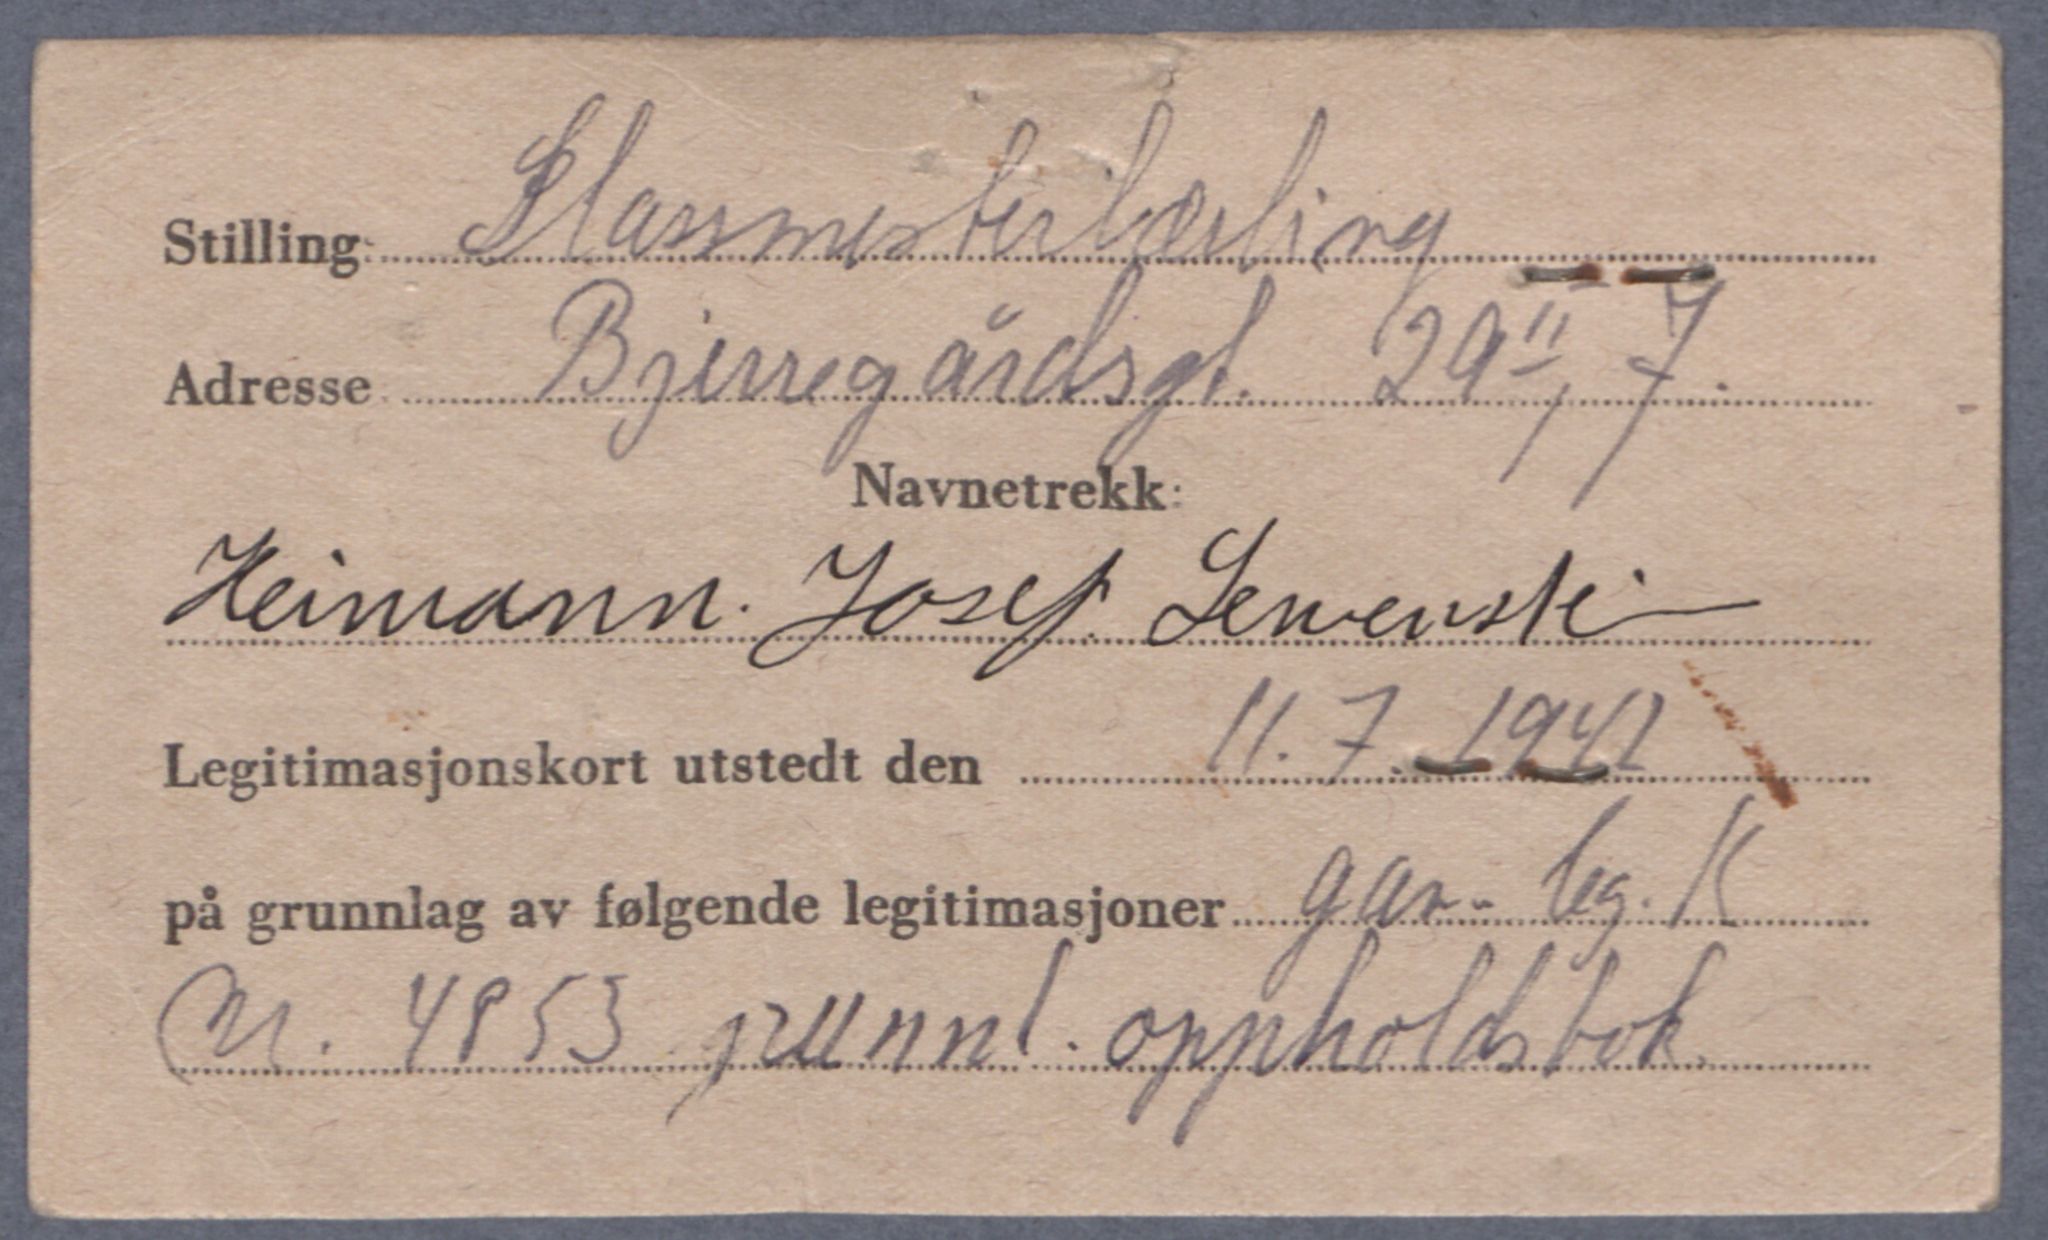 Stilling: Glassmesterlærling
Adresse Bjerregårdsgt. 29 II, 7.
Navnetrekk:
Heimann. Josef. Lewenski
Legitimasjonskort utstedt den 11.7.1941
på grunnlag av følgende legitimasjoner gar. leg. k
Nr. 4853 grunnl. oppholdsbok.